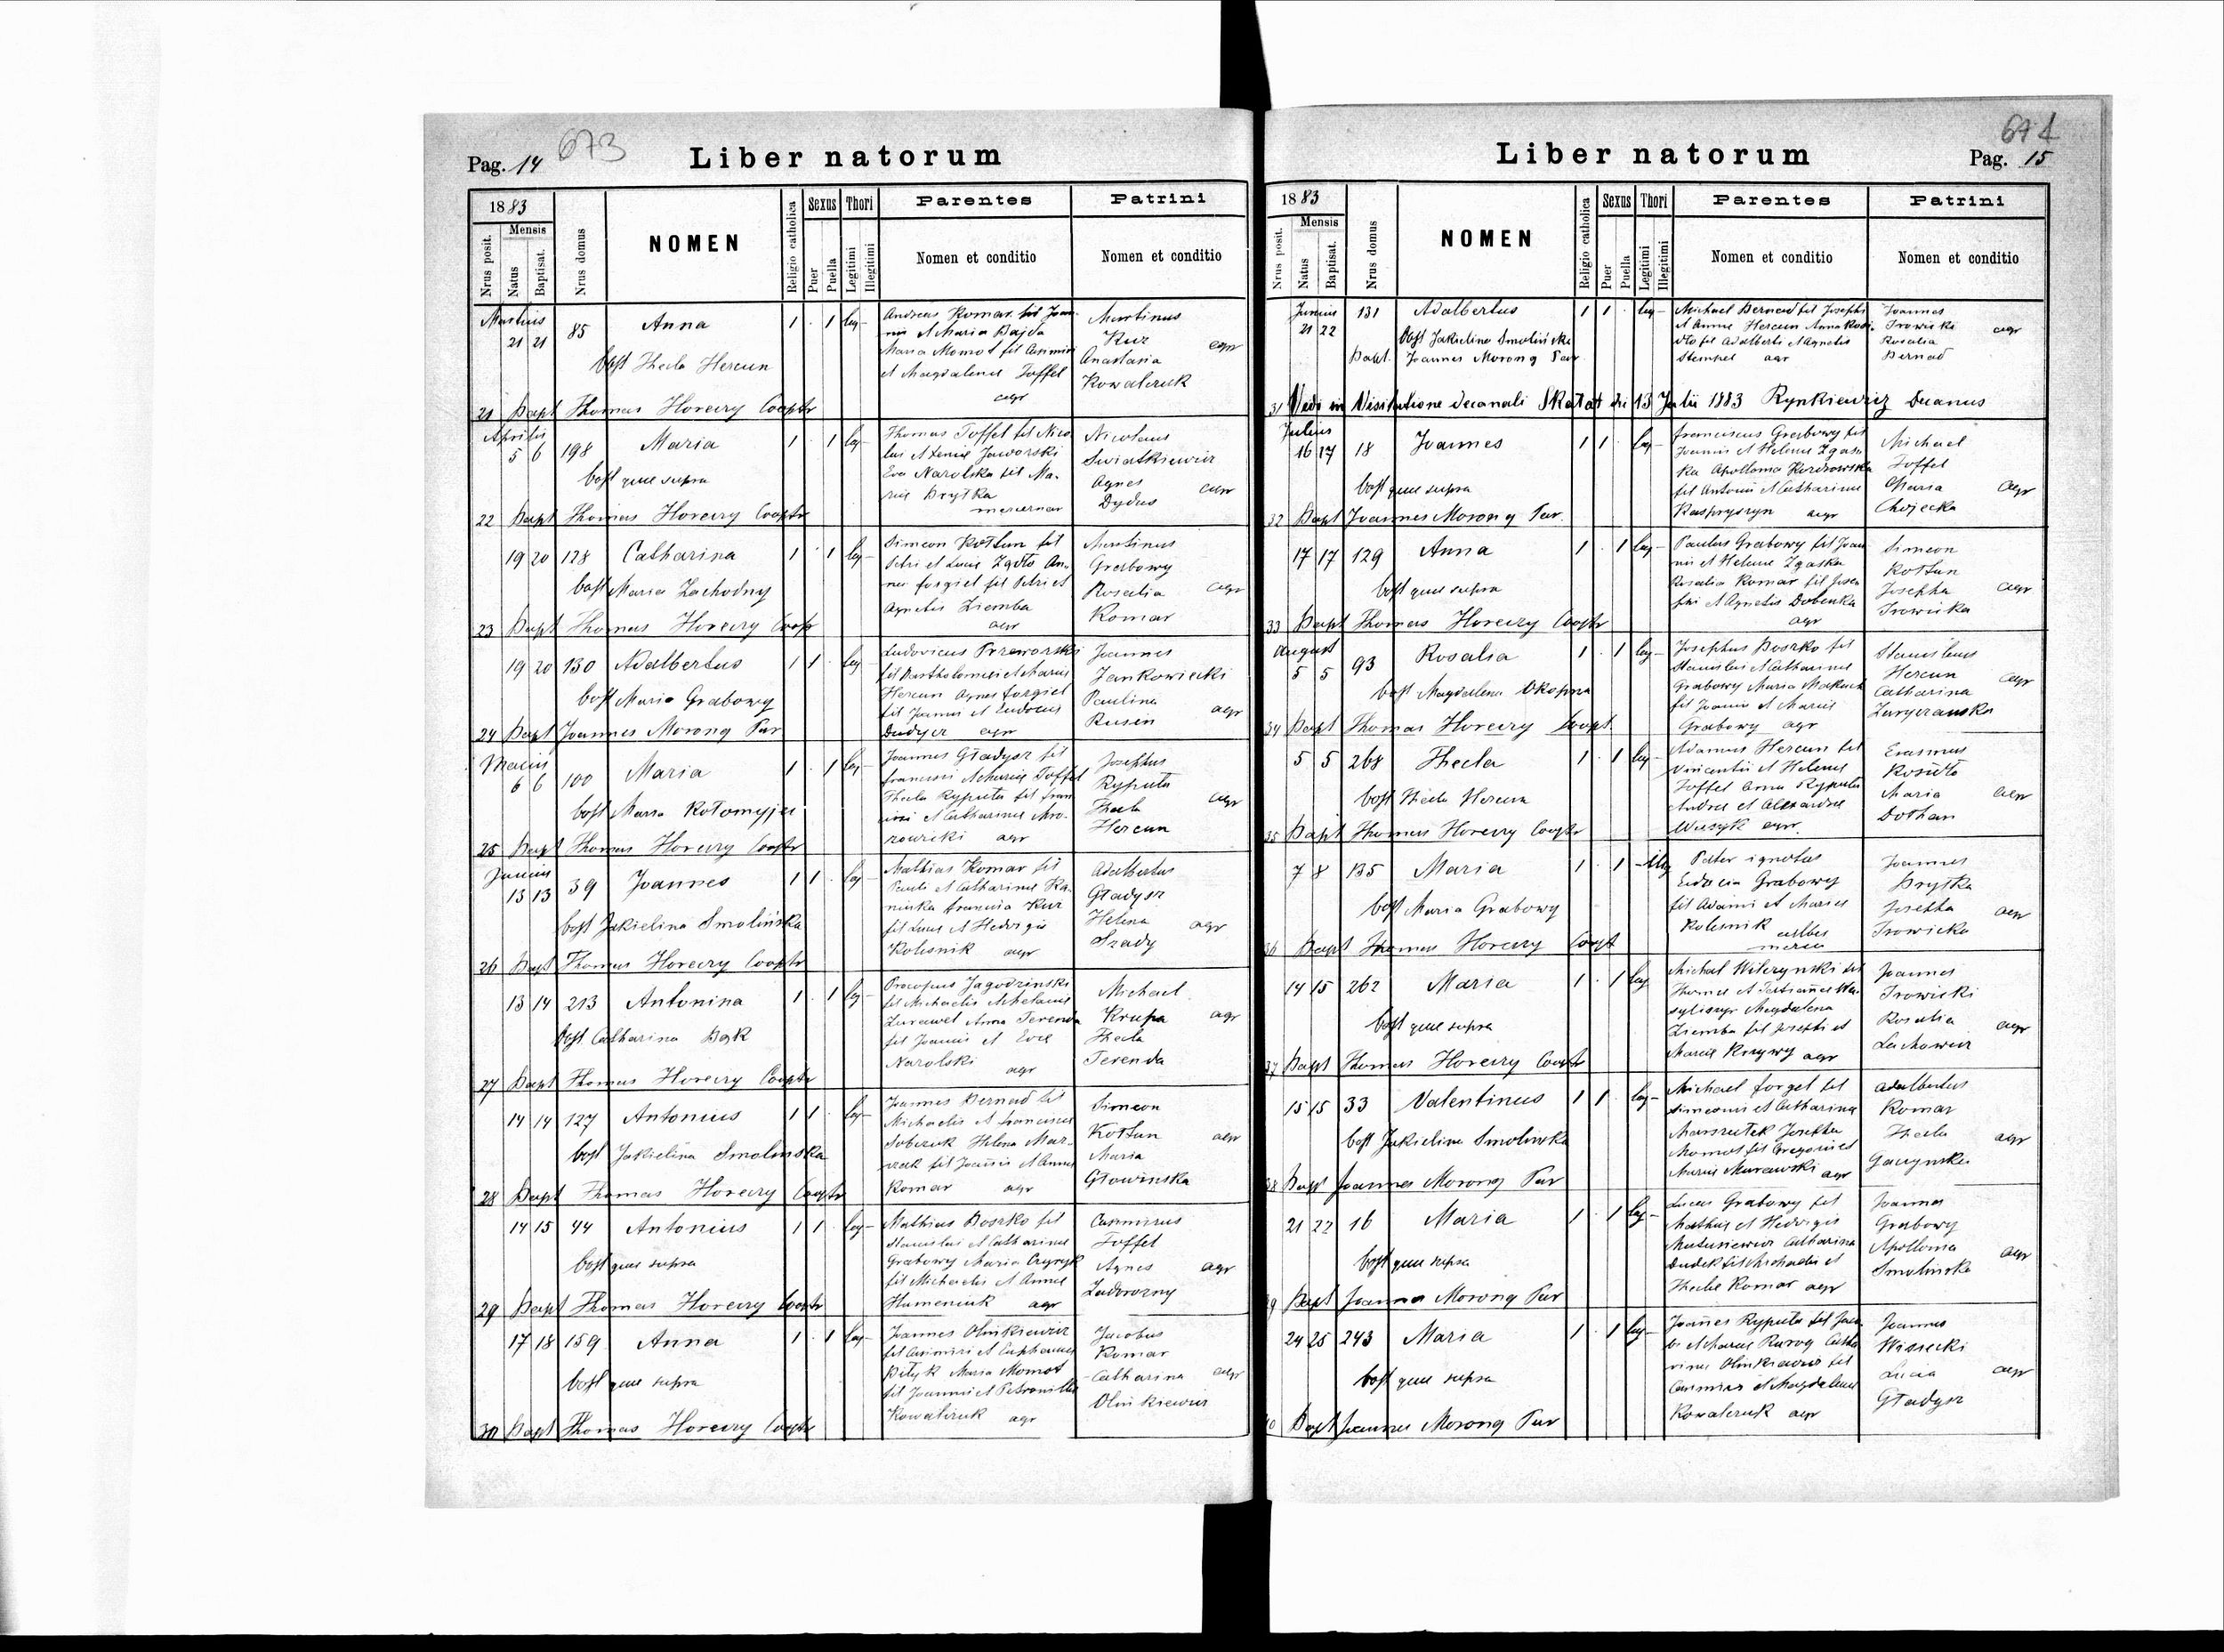 673
Pag. 14
Liber natorum
1883
Mensis
Nrus posit.
Natus
Baptisat.
Nrus domus
NOMEN
Religio catholica
Sexus
Puer
Puella
Thori
Legitimi
Illegitimi
Parentes
Nomen et conditio
Patrini
Nomen et conditio
Martius
21 21 85 Anna 1 1 leg
obst Thecla Hercun
Andreas Komar fil Joan-
nis et Maria Bajda
Maria Momot fil Casimiri
et Magdalena Toffel
agr
Martinus
Kuz agr
Anastasia
Kowalczuk
21 Bapt Thomas Horeczy Cooptr
Aprilis
5 6 198 Maria 1 1 leg
obst quae supra
Thomas Toffel fil Nico
lai et Xeniae Jaworski
Eva Narolska fil Ma-
riae Brytka
mercenar
Nicolaus
Swiatkiewicz
Agnes agr
Dydus
22 Bapt Thomas Horeczy Cooptr
19 20 128 Catharina 1 1 leg
obst Maria Zachodny
Simeon Kołtun fil
Petri et Luciae Zgoła An-
na Forgiel fil Petri et
Agnetis Ziemba
agr
Martinus
Grabowy
Rosalia agr
Komar
23 Bapt Thomas Horeczy Coop
19 20 130 Adalbertus 1 1 leg
obst Maria Grabowy
Ludovicus Przeworski
fil Bartholomiei et Mariae
Hercun Agnes Forgiel
fil Joannis et Eudociae
Dudycz agr
Joannes
Jankowiecki
Paulina agr
Rusin
24 Bapt Joannes Morong Par
Maius
6 6 100 Maria 1 1 leg
obst Maria Kołomyjec
Joannes Gładysz fil
Francisci et Mariae Toffel
Thecla Ryputa fil Fran
cisci et Catharinae Mro-
zowicki agr
Josephus
Ryputa
Thecla agr
Hercun
25 Bapt Thomas Horeczy Cooptr
Junius
13 13 39 Joannes 1 1 leg
obst Jakielina Smolińska
Mathias Komar fil
Pauli et Catharinae Ka-
ninska Francisca Kuz
fil Lucae et Hedvigis
Kolesnik agr
Adalbertus
Gładysz
Helena agr
Szady
26 Bapt Thomas Horeczy Cooptr
13 14 213 Antonina 1 1 leg
obst Catharina Bąk
Procopus Jagodzinski
fil Michaelis et Melaniae
Zurawel Anna Terenda
fil Joannis et Evae
Narolski agr
Michael
Krupa agr
Thecla
Terenda
27 Bapt Thomas Horeczy Cooptr
14 14 127 Antonius 1 1 leg
obst Jakielina Smolinska
Joannes Bernad fil
Michaelis et Franciscae
Sobczuk Helena Mar-
czak fil Joannis et Annae
Komar agr
Simeon
Kołtun agr
Maria
Głowinska
28 Bapt Thomas Horeczy Cooptr
14 15 44 Antonius 1 1 leg
obst quae supra
Mathias Boszko fil
Stanislai et Catharinae
Grabowy Maria Czyryk
fil Michaelis et Annae
Humeniuk agr
Casimirus
Toffel
Agnes agr
Zadworny
29 Bapt Thomas Horeczy Cooptr
17 18 159 Anna 1 1 leg
obst quae supra
Joannes Olinkiewicz
fil Casimiri et Euphemiae
Bityk Maria Momot
fil Joannis et Petronilla
Kowalczuk agr
Jacobus
Komar
Catharina agr
Olinkiewicz
30 Bapt Thomas Horeczy Cooptr
674
Liber natorum
Pag. 15
1883
Mensis
Nrus posit.
Natus
Baptisat.
Nrus domus
NOMEN
Religio catholica
Sexus
Puer
Puella
Thori
Legitimi
Illegitimi
Parentes
Nomen et conditio
Patrini
Nomen et conditio
Junius
21 22 131 Adalbertus 1 1 leg
obst Jakielina Smolińska
Bapt. Joannes Morong Par
Michael Bernad fil Josephi
et Annae Hercun Anna Kosi-
dło fil Adalberti et Agnetis
Stempel agr
Joannes
Trowicki agr
Rosalia
Bernad
31 Vidi in Visitatione decanali Skałat die 13 Julii 1883 Rynkiewicz Decanus
Julius
16 17 18 Joannes 1 1 leg
obst quae supra
Franciscus Grabowy fil
Joannis et Helenae Zgas
ka Apollonia Kordzowska
fil Antonii et Catharinae
Kaspryszyn agr
Michael
Toffel
Maria agr
Chojecka
32 Bapt Joannes Morong Par.
17 17 129 Anna 1 1 leg
obst quae supra
Paulus Grabowy fil Joan
nis et Helenae Zgaska
Rosalia Komar fil Jose
phi et Agnetis Dobenka
agr
Simeon
Kołtun
Josepha agr
Trowicka
33 Bapt Thomas Horeczy Cooptr
August
5 5 93 Rosalia 1 1 leg
obst Magdalena Okopna
Josephus Boszko fil
Stanislai et Catharinae
Grabowy Maria Makuch
fil Joannis et Mariae
Grabowy agr
Stanislaus
Hercun agr
Catharina
Zaryczanska
34 Bapt Thomas Horeczy Coopt.
5 5 268 Thecla 1 1 leg
obst Thecla Hercun
Adamus Hercun fil
Vincentii et Helenae
Toffel Anna Ryputa
Andreae et Alexandrae
Wasyk agr.
Erasmus
Kosidło
Maria agr
Dołhan
35 Bapt Thomas Horeczy Cooptr
7 8 135 Maria 1 1 illeg
obst Maria Grabowy
Pater ignotus
Eudocia Grabowy
fil Adami et Mariae
Kolesnik caelbes
merca
Joannes
Brytka
Josepha agr
Trowicka
36 Bapt Thomas Horeczy Coopt
14 15 262 Maria 1 1 leg
obst quae supra
Michal Wilczynski fil
Thomae et Tatiannae Wa-
syliszyn Magdalena
Ziemba fil Josephi et
Mariae Krzywy agr
Joannes
Trowicki
Rosalia agr
Lachowicz
37 Bapt Thomas Horeczy Cooptr
15 15 33 Valentinus 1 1 leg
obst Jakielina Smolinska
Michael Forgel fil
Simeonis et Catharina
Marszałek Josepha
Momot fil Gregorii et
Mariae Murawski agr
Adalbertus
Komar
Thecla agr
Gaczynska
38 Bapt Joannes Morong Par
21 22 16 Maria 1 1 leg
obst quae supra
Lucas Grabowy fil
Mathiae et Hedvigis
Matusiewicz Catharina
Dudek fil Michaelis et
Theclae Komar agr
Joannes
Grabowy
Apollonia agr
Smolinska
39 Bapt Joannes Morong Par
24 25 243 Maria 1 1 leg
obst quae supra
Joannes Ryputa fil Jaco
bi et Mariae Rurog Catha
rina Olinkiewicz fil
Casimiri et Magdalenae
Kowalczuk agr
Joannes
Wisiecki
Lucia agr
Gładysz
40 Bapt Joannes Morong Par